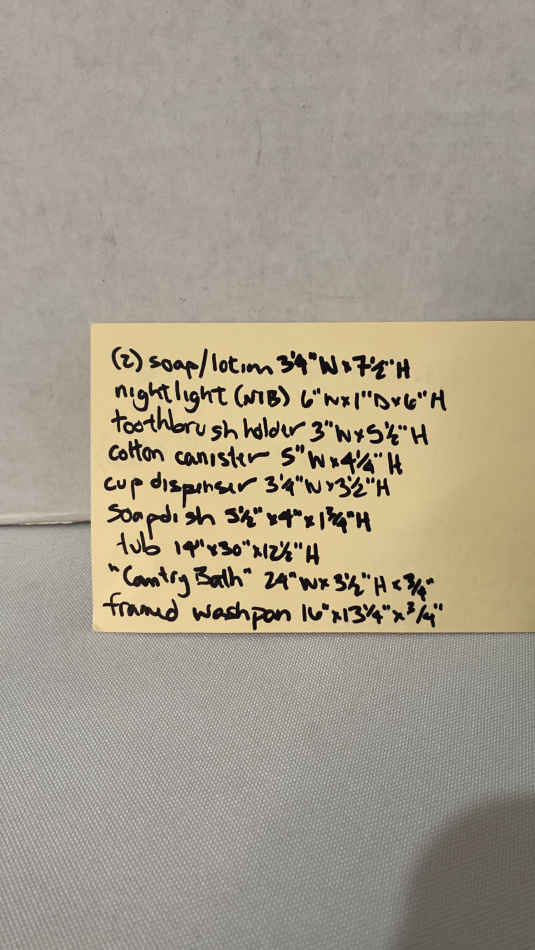 (2) soap/lotion 3¼"W x 7½"H
nightlight (NIB) 6"W x 1"D x 6"H
toothbrush holder 3"W x 5½"H
cotton canister 5"W x 4¼"H
cup dispenser 3¼"W x 3½"H
soapdish 5½" x 4" x 1¾"H
tub 19" x 30" x 12½"H
"Country Bath" 24"W x 3½"H x ¾"
framed washpan 16" x 13¼" x ¾"